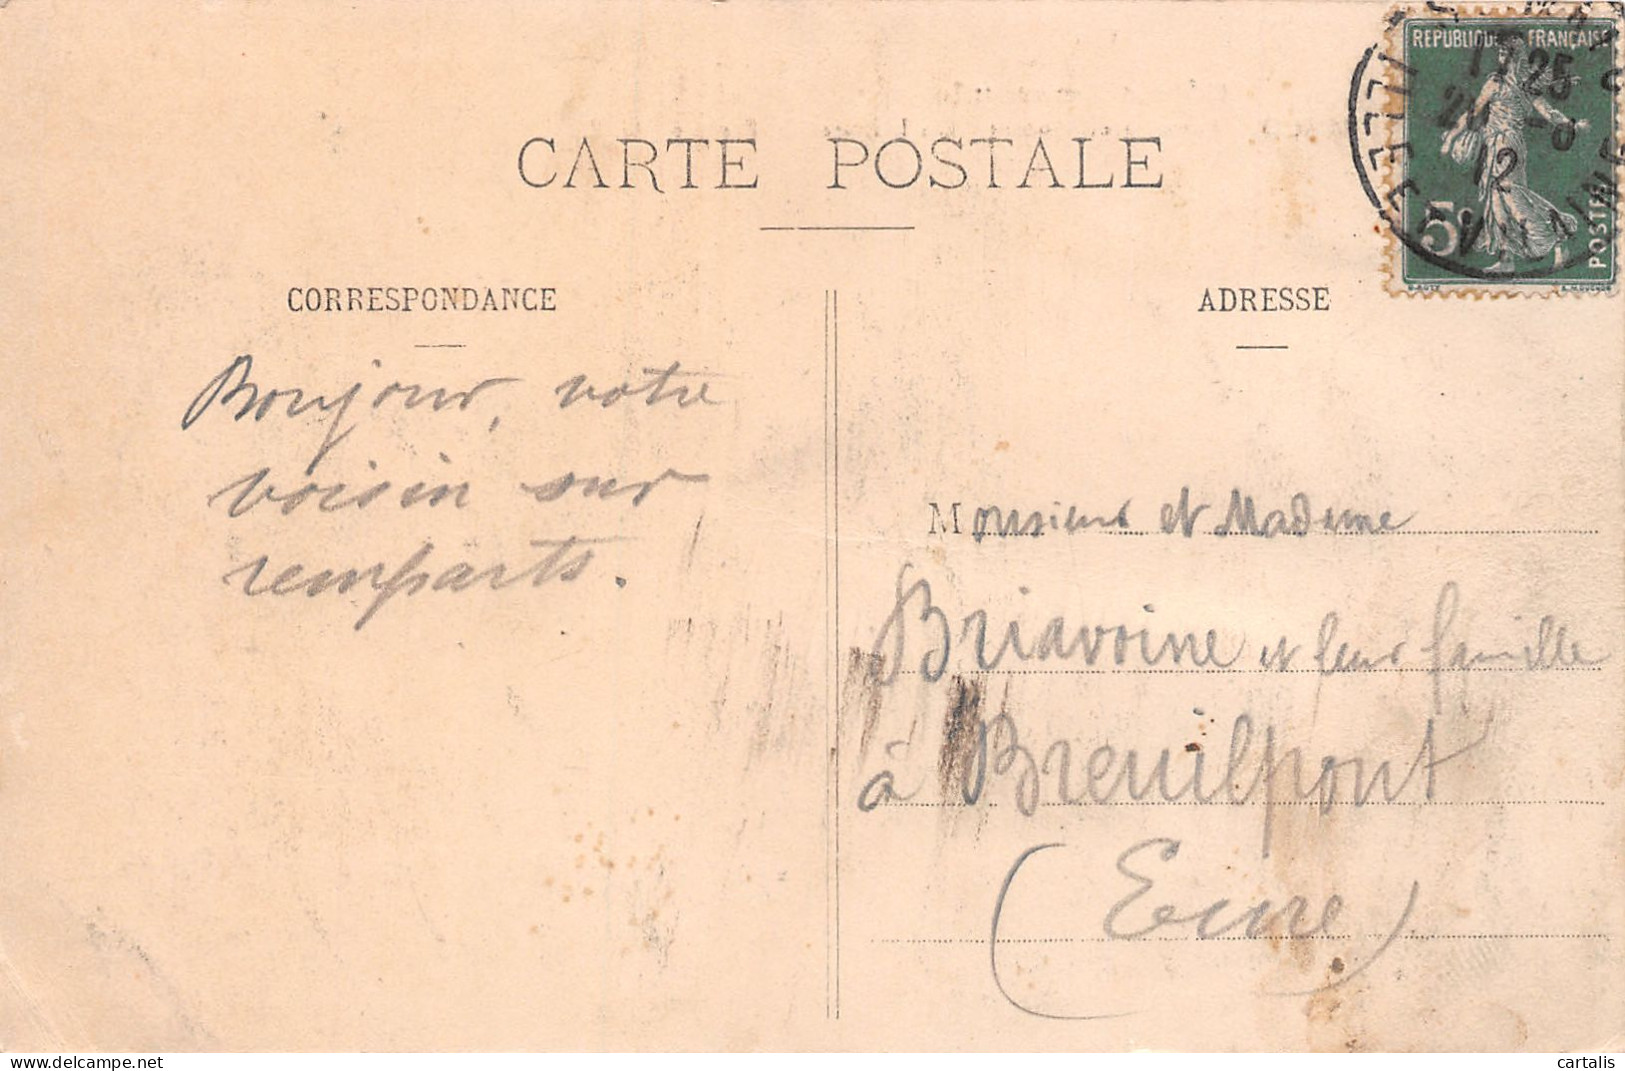 CARTE POSTALE
CORRESPONDANCE
ADRESSE
REPUBLIQUE FRANÇAISE
5c
POSTES
17 25
20 -8
12
ILLE-ET-VILAINE
Bonjour, votre
voisin sur
remparts.
Monsieur et Madame
Briavoine et leur famille
à Breuilpont
(Eure)
delcampe.net
cartalis